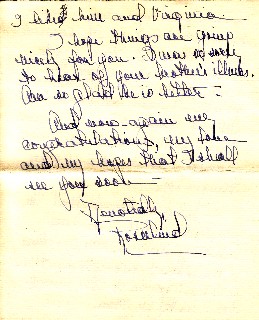 I like him and Virginia
I hope things are going
nicely for you. I was so sorry
to hear of your brother's illness.
Am so glad he is better –
And now again my
congratulations, my love
and my hopes that I shall
see you soon –
Devotedly,
Rosalind